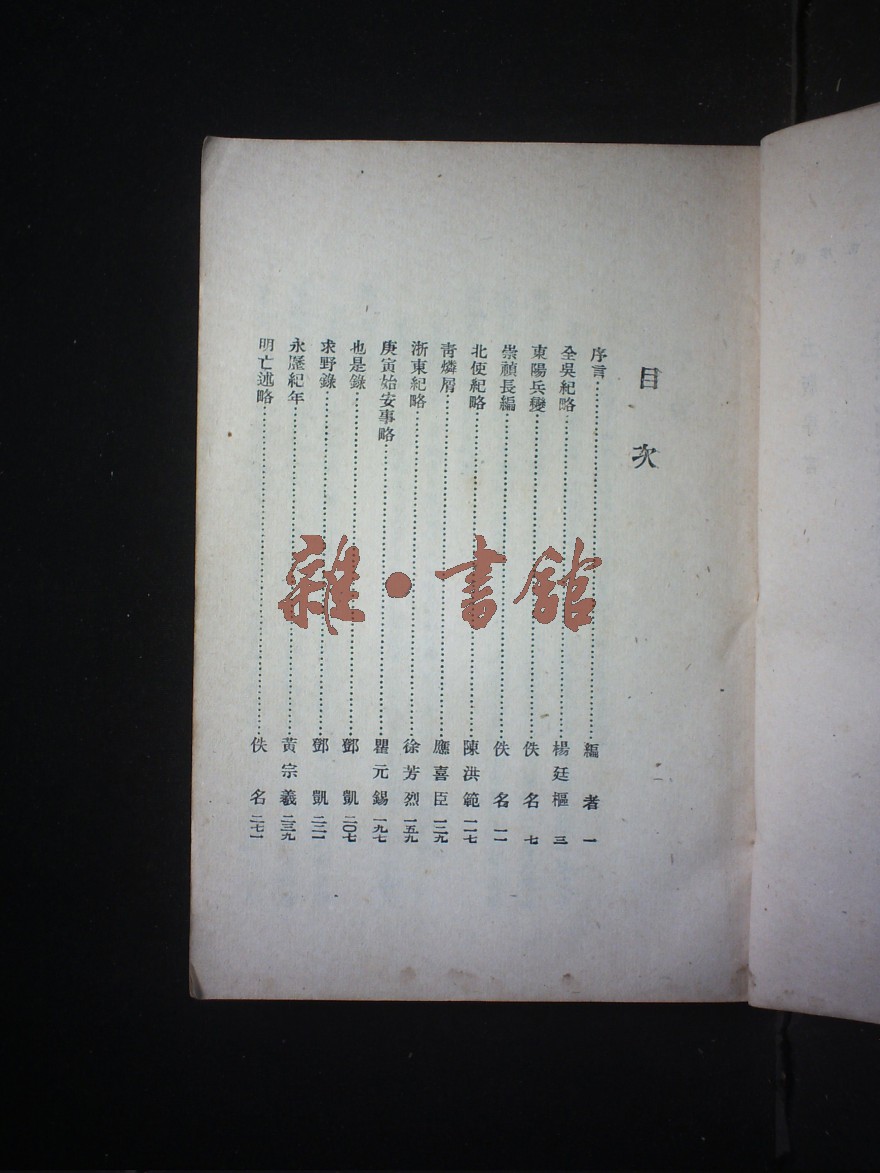 目次
序言……編者 一
全吳紀略……楊廷樞 三
東陽兵變……佚名 七
崇禎長編……佚名 一一
北使紀略……陳洪範 一一七
青燐屑……應喜臣 一二九
浙東紀略……徐芳烈 一五九
庚寅始安事略……瞿元錫 一九七
也是錄……鄧凱 二〇七
求野錄……鄧凱 二二一
永歷紀年……黃宗羲 二三九
明亡述略……佚名 二七一
雜·書館